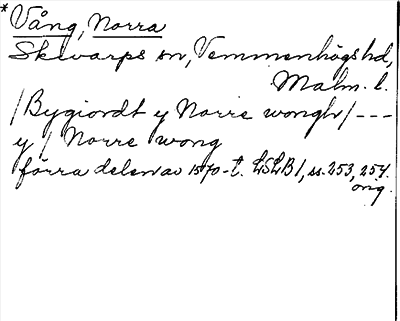 * Vång, Norra
Skivarps sn, Vemmenhögs hd,
Malm. l.
/Bygiordt y Norre wongh/ ---
y / Norre wong
förra delen av 1570-t. LSLB 1, ss. 253, 254.
orig.